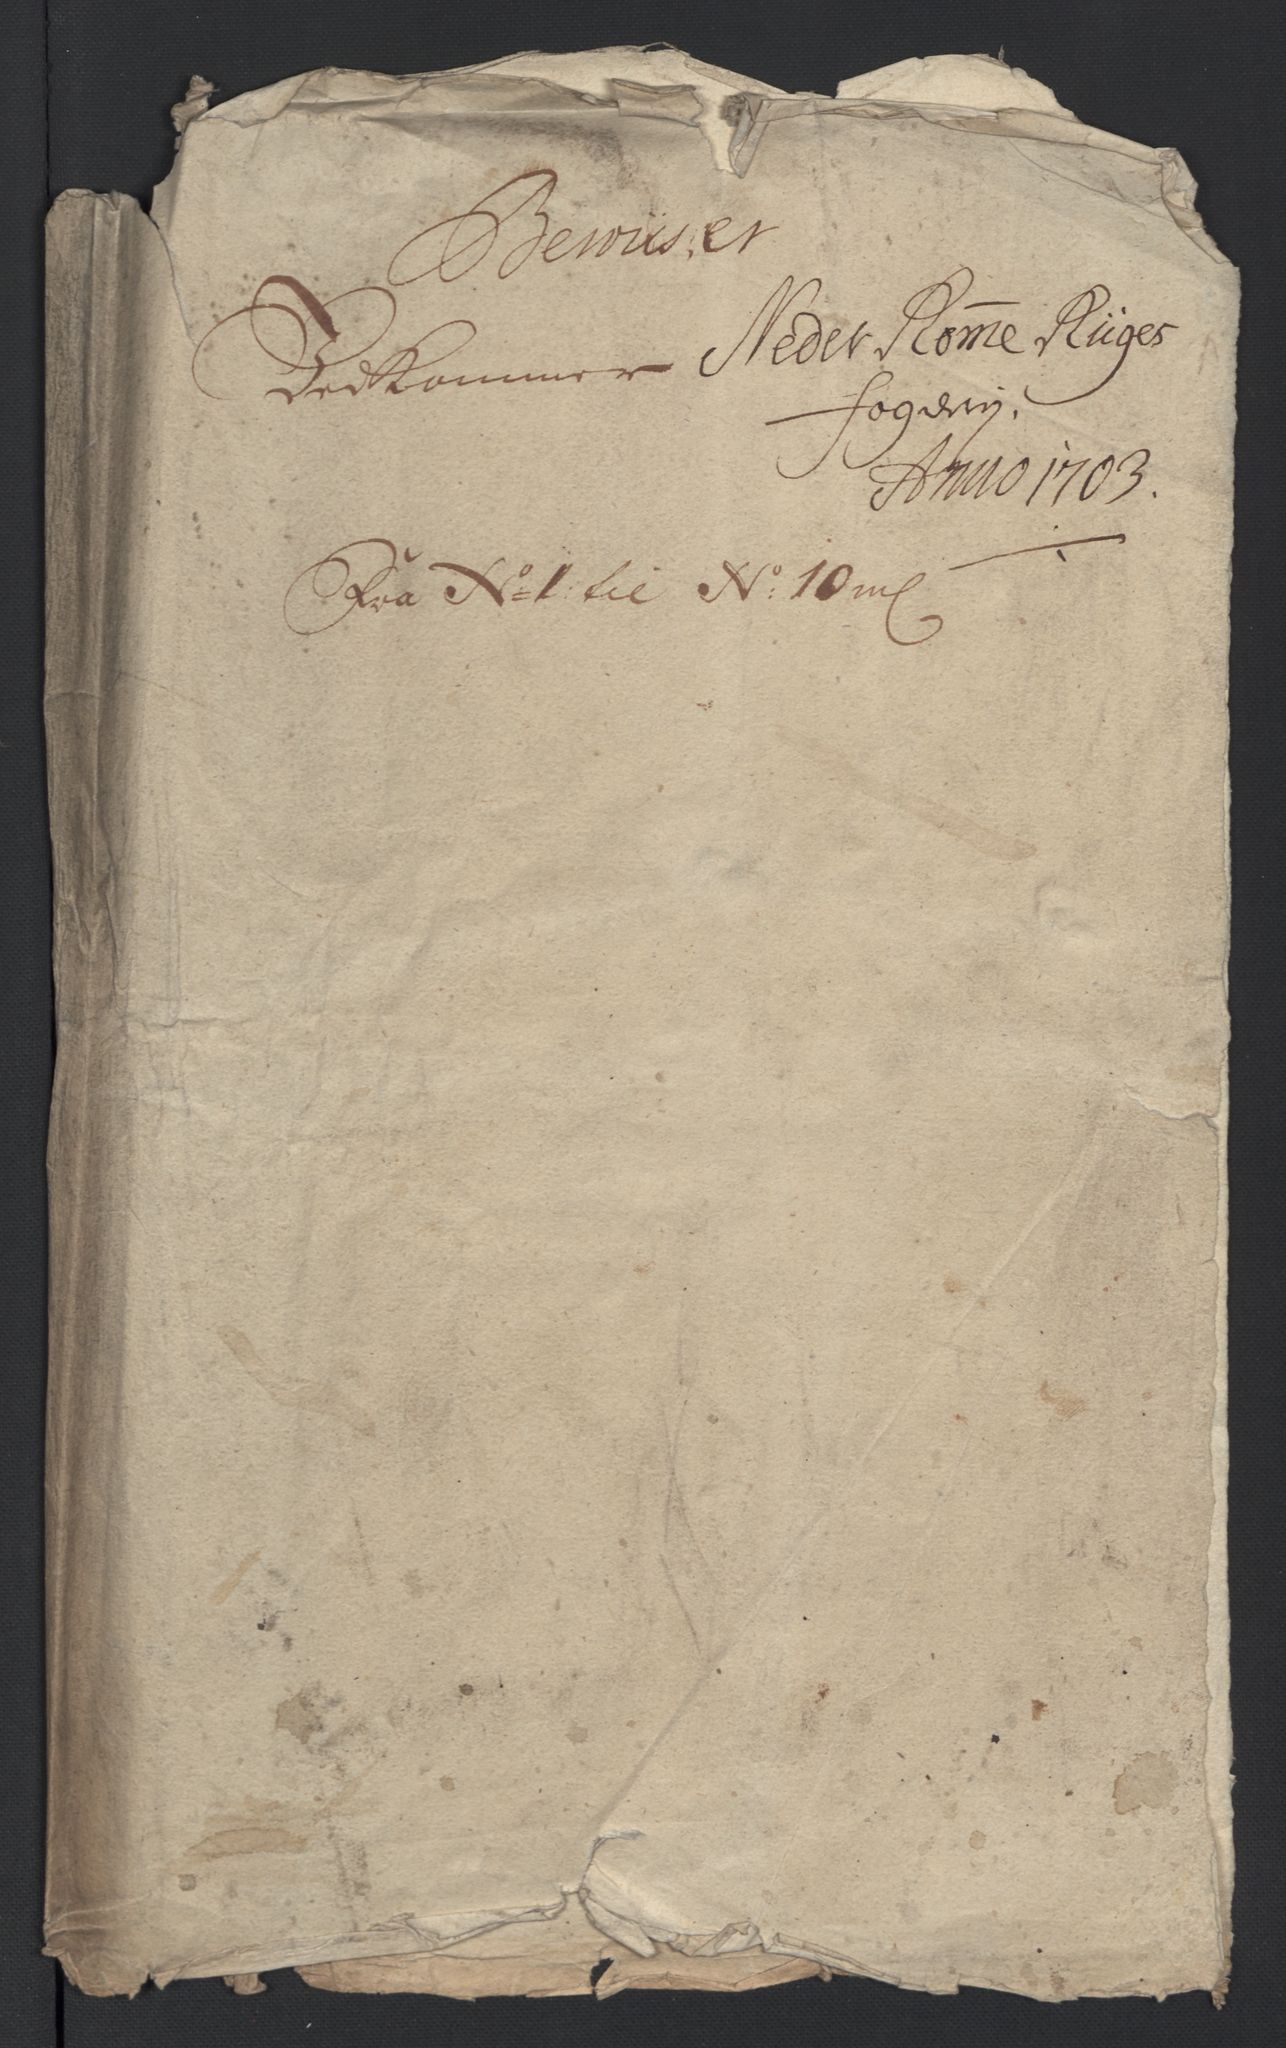 Bewiis,er
Vedkommer Neder Rom̅e Riiges
fogderij.
Anno 1703.
Fra No: 1: til No: 10